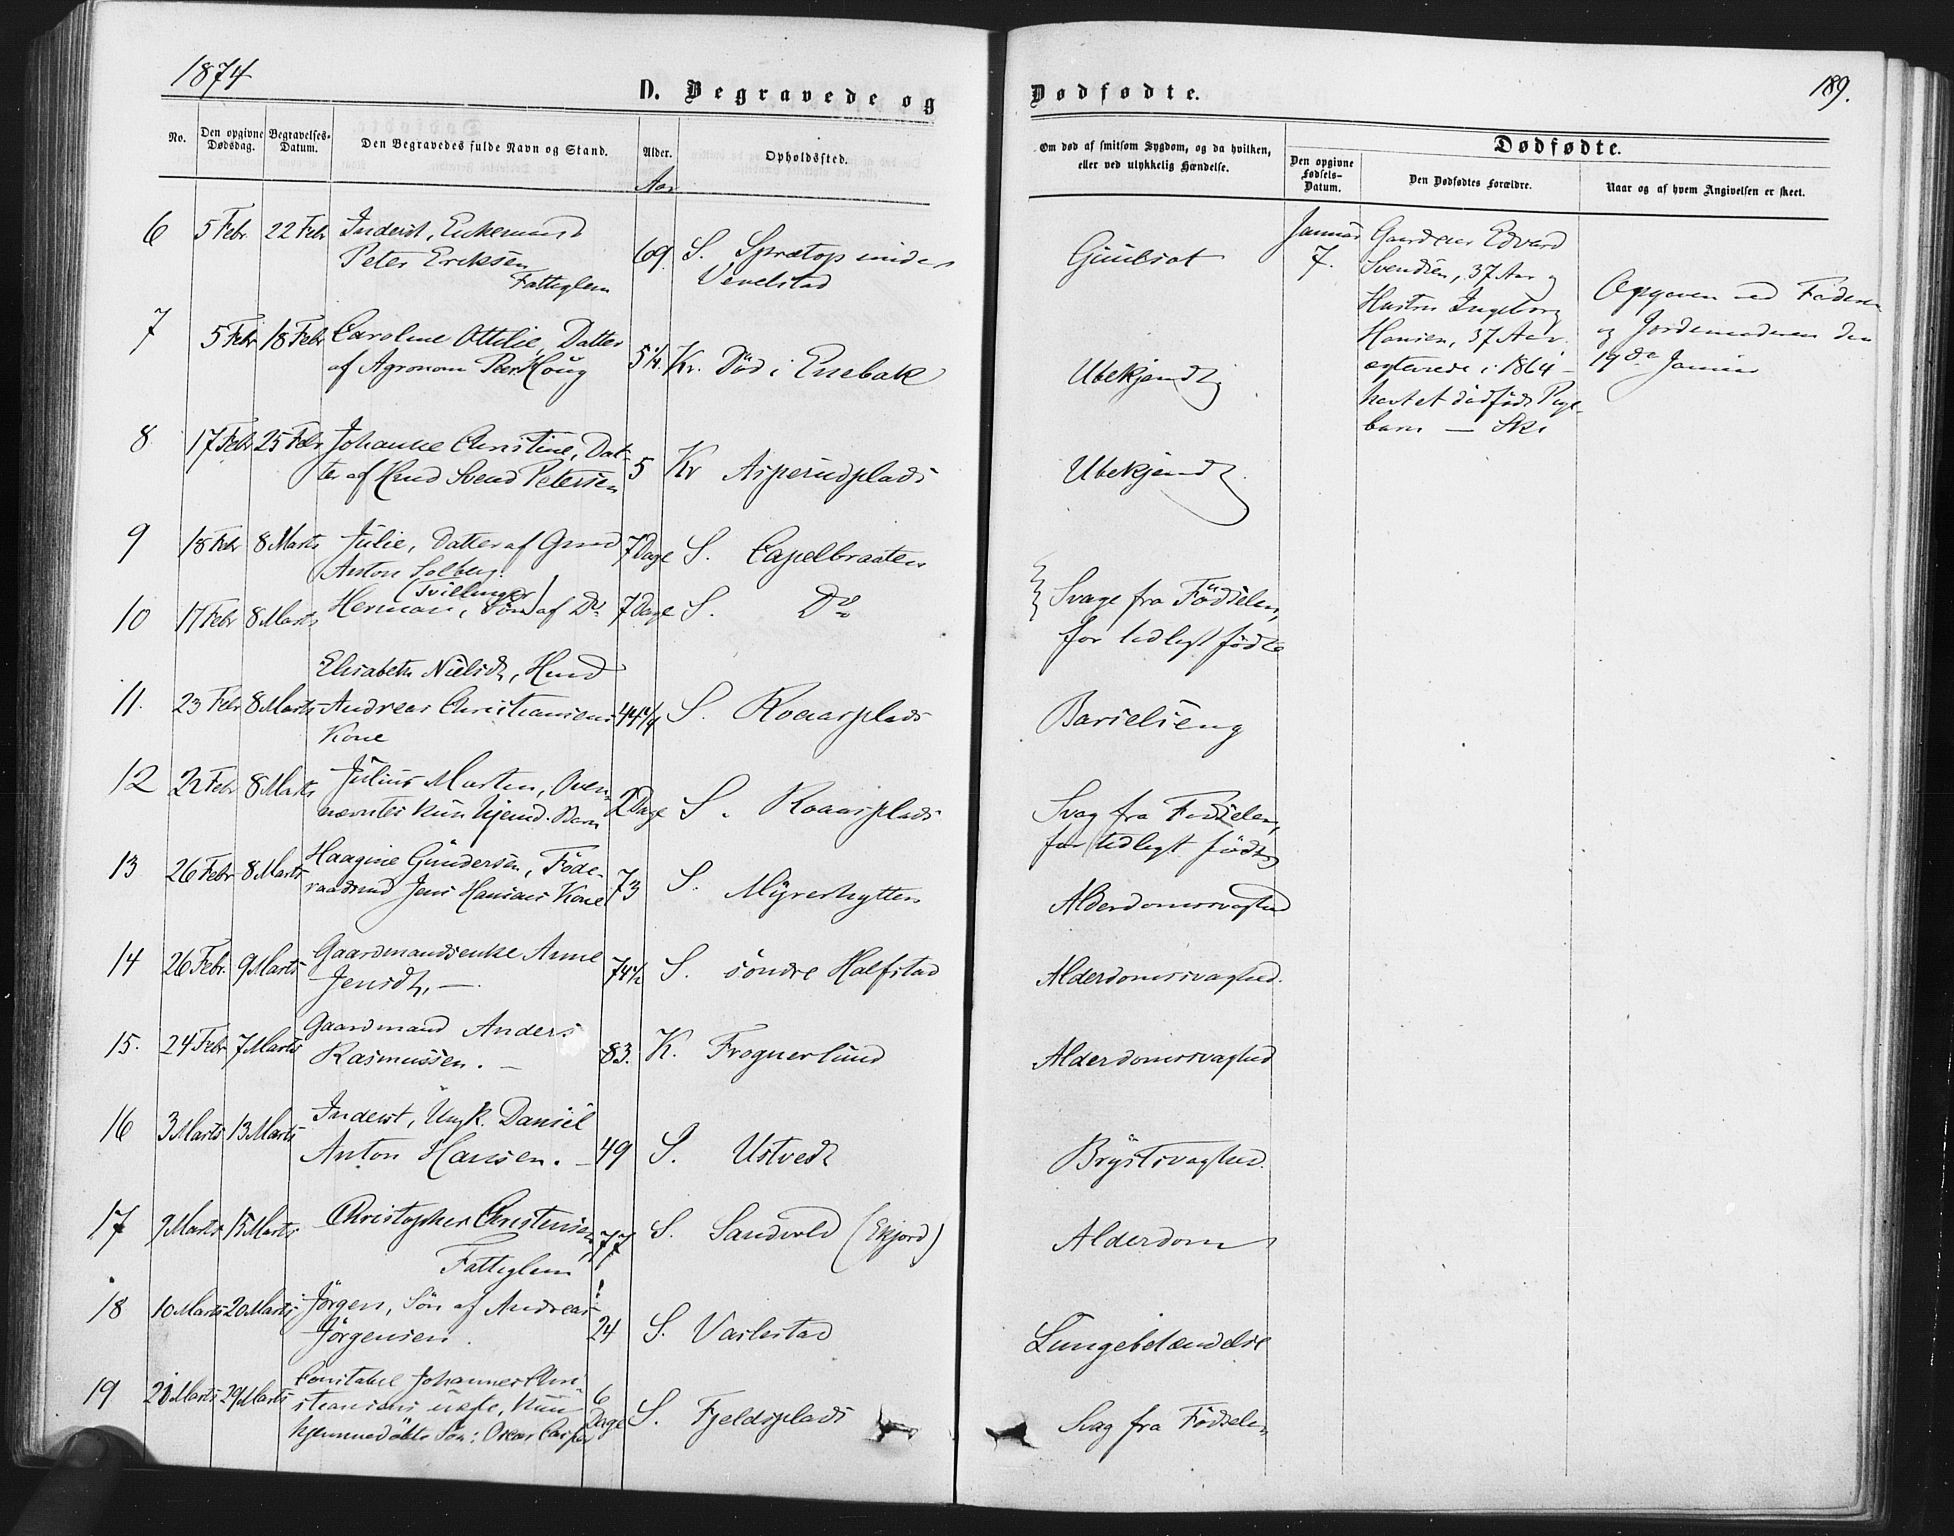 1874
D. Begravede og
Dødfødte.
189.
No.
Den opgivne Dødsdag.
Begravelses-Datum.
Den Begravedes fulde Navn og Stand.
Alder.
Aar
Opholdssted.
Om død af smitsom Sygdom, og da hvilken,
eller ved ulykkelig Hændelse.
Dødfødte.
Den opgivne Fødsels-Datum.
Den Dødfødtes Forældre.
Naar og af hvem Angivelsen er skeet.
6 5 Febr 22 Febr Inderst, Enkemand
Peter Eriksen 69 S. under
Fattiglem
7 5 Febr 18 Febr Caroline Ottilie, Datter
af Agronom Houg 5 1/4 Kr. Død i Enebak Ubekjendt
8 17 Febr 25 Febr Johanne Christine, Dat-
ter af Svend Petersen 5 Kr Asperudplads Ubekjendt
9 18 Febr 8 Marts Julie, Datter af
Anton Solberg. 7 Dage S. Capelbraaten
(Tvillinger)
10 17 Febr 8 Marts Herman, Søn af Do 7 Dage S. Do
Svage fra Födselen,
for tidligt fødte
11. 23 Febr 8 Marts Elisabeth Nielsdt, Husmd
Andreas Christiansens 44 1/4 S. Roaasplads Barselseng
Kone
12 22 Febr 8 Marts Julius Martin, Oven-
nævntes kun hjemd. Barn 2 Dage S. Roaasplads
Svag fra Fødselen,
for tidligt født
13 26 Febr 8 Marts Haagine Gundersen, Føde-
raadsmd Jens Hansens Kone 73 S. Myrerhytten Alderdomssvaghed
14 26 Febr. 9 Marts Gaardmandsenke Anne
Jensdt. — 74 1/2 S. söndre Halfstad Alderdomssvaghed.
15. 24 Febr 7 Marts Gaardmand Anders
Rasmussen. — 83. K. Frognerlund Alderdomssvaghed
16 3 Marts 13 Marts Inderst, Ungk. Daniel
Anton Hansen. — 49 S. Ustvedt Brystsvaghed.
17 9 Marts 15 Marts Christopher Christensen
Fattiglem 77 S. Sandvold (Ekjord) Alderdom
18 10 Marts 20 Marts Jörgen, Sön af Andreas
Jörgensen. 24 S. Varlestad Lungebetændelse
19 21 Marts 29 Marts Constabel Johannes Chri-
stiansens uægte, kun
hjemmedöbte Sön: Oscar Casper 6 Dage S. Fjeldsplads Svag fra Födselen
Januar
7.
Edvard
Svendsen, 37 Aar og
Hustru Ingeborg
Hansen, 37 Aar.
ægteviede i 1864 –
havt et dødfødt Pige-
barn — Ski
Opgiven ved Faderen
og Jordemoderen den
19de Januar